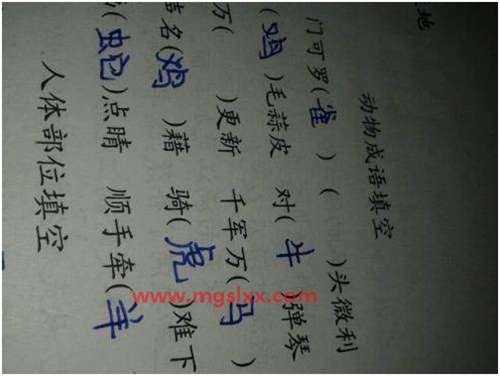 地
动物成语填空
门可罗(雀)(　)头微利
(鸡)毛蒜皮 对(牛)弹琴
万(　)更新 千军万(马)
名(鸡)藉 骑(虎)难下
(蛇)点睛 顺手牵(羊)
人体部位填空
www.mgslxx.com